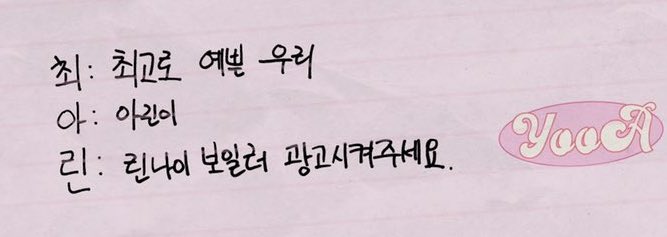 최: 최고로 예쁜 우리
아: 아린이
린: 린나이 보일러 광고시켜주세요.
YooA